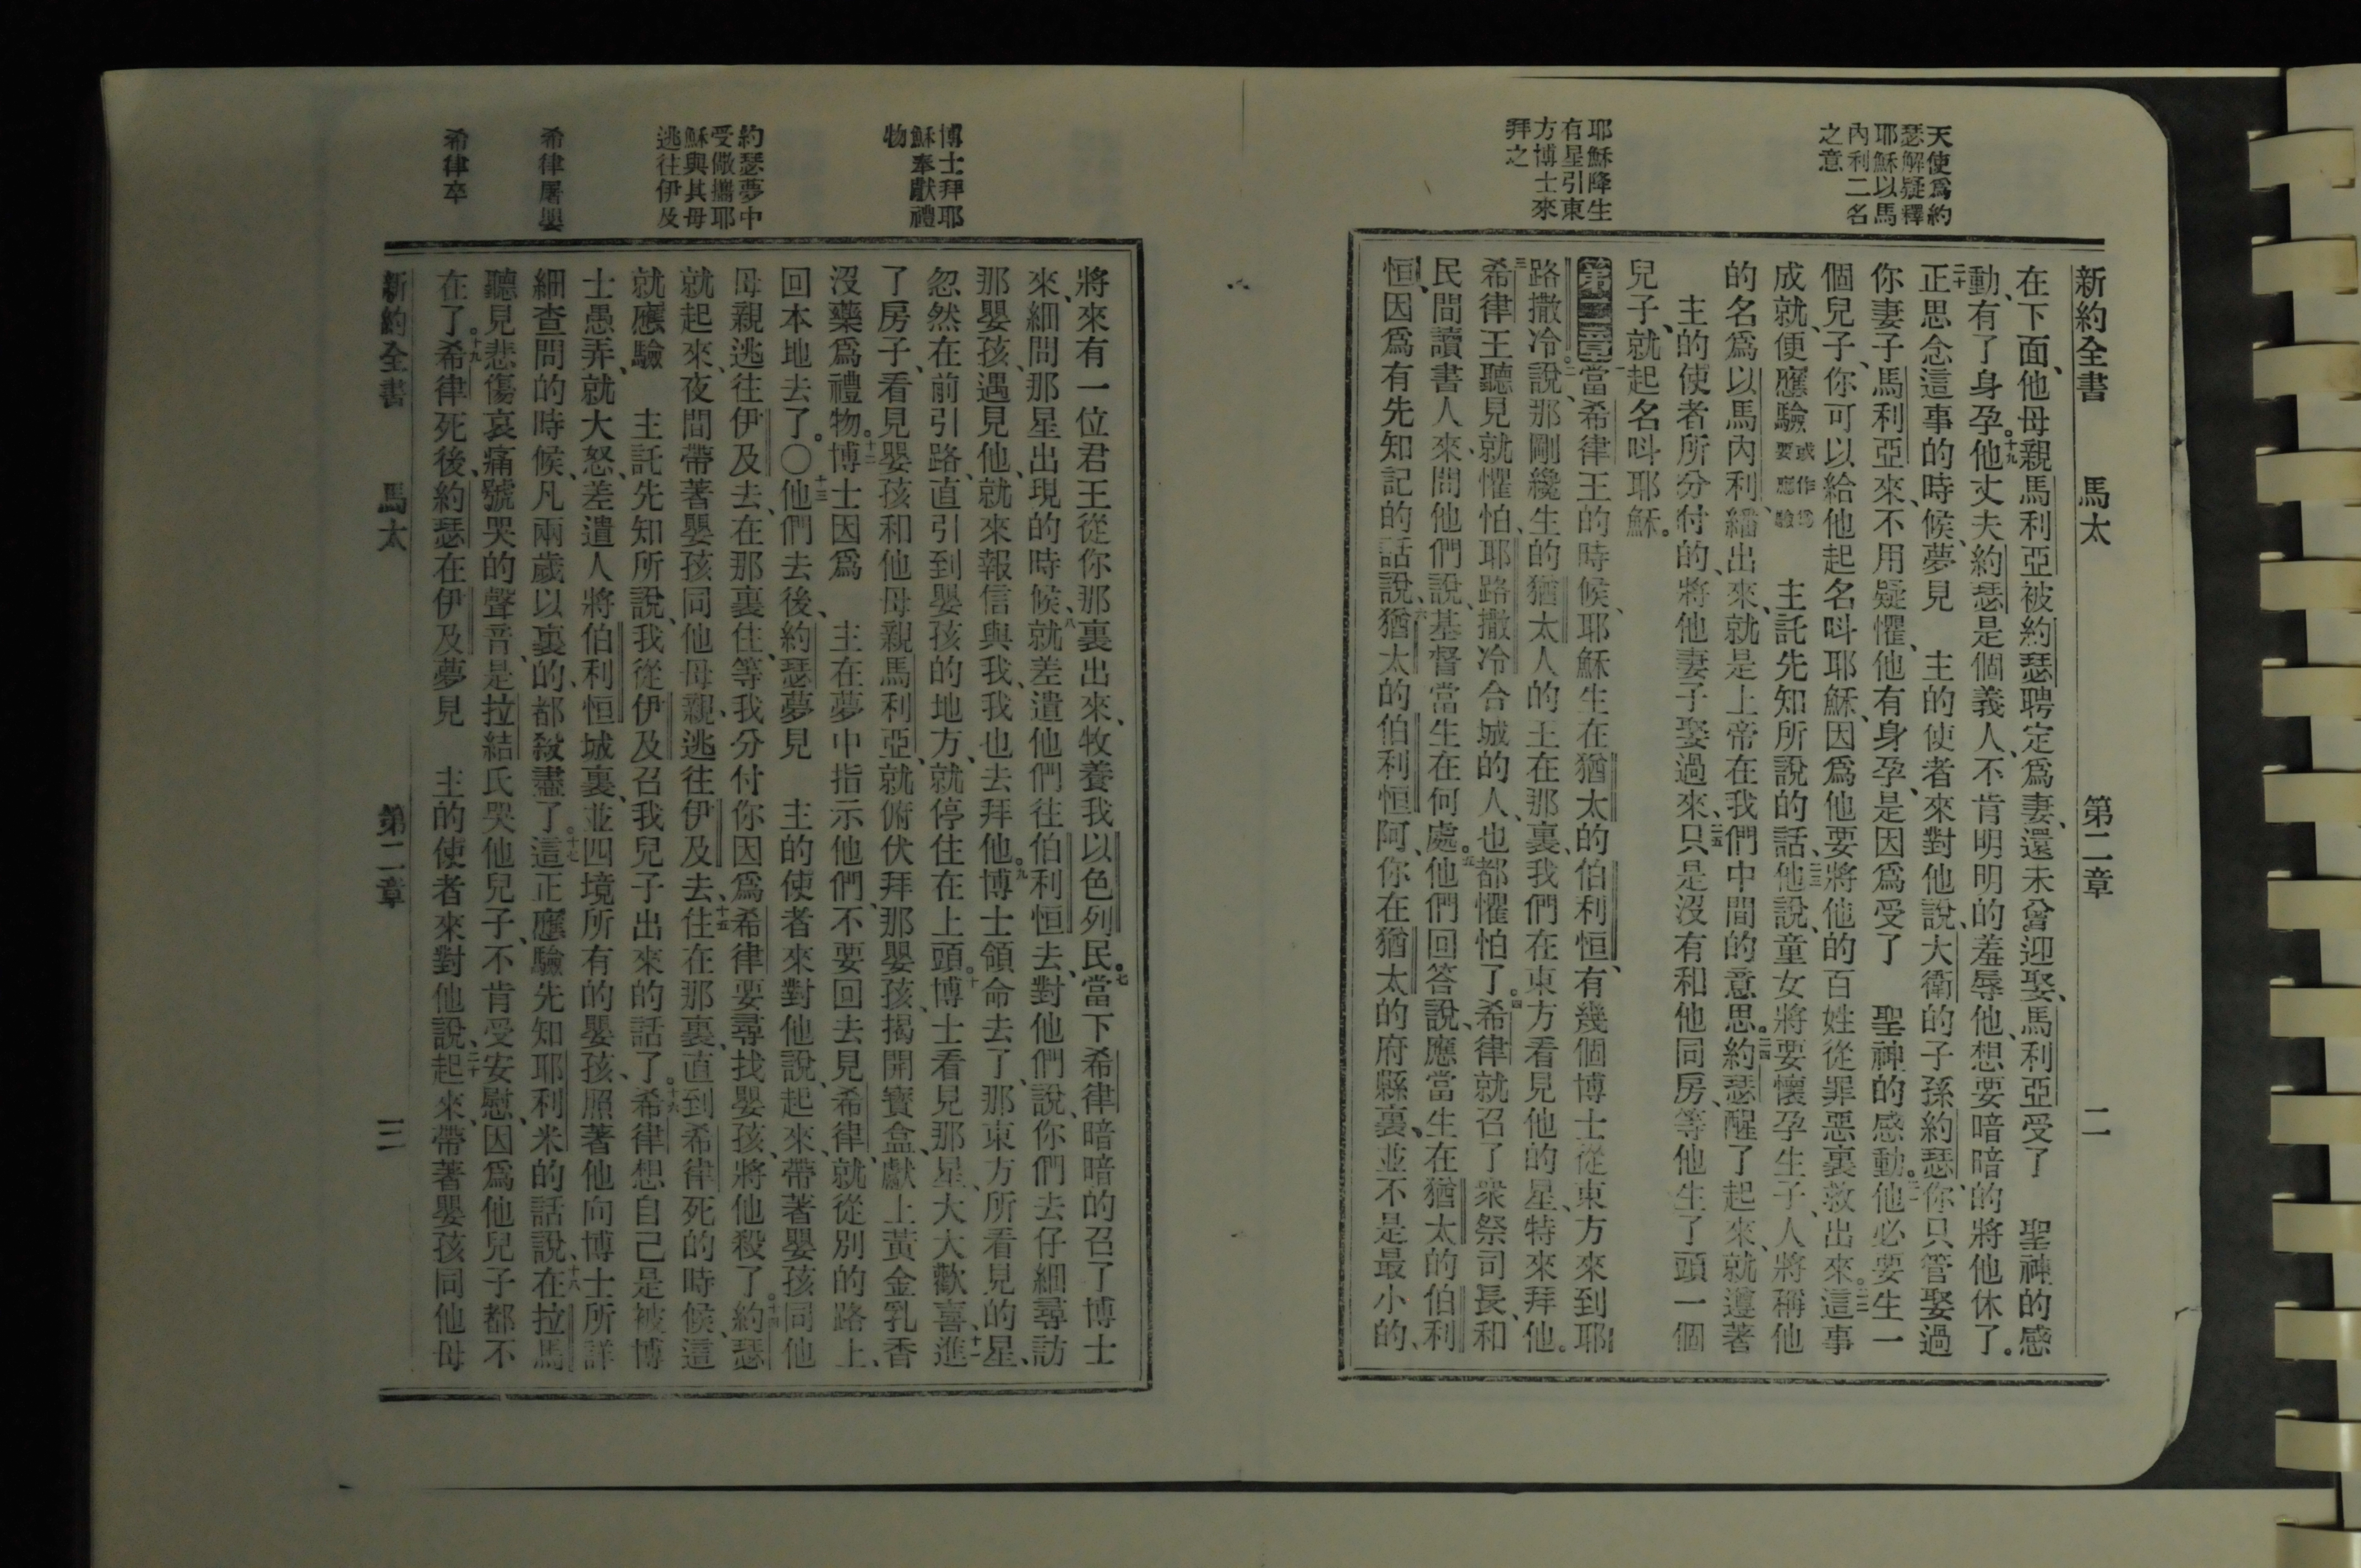 天使爲約
瑟解疑釋
耶穌以馬
內利二名
之意
耶穌降生
有星引東
方博士來
拜之
新約全書 馬太 第二章 二
在下面、他母親馬利亞被約瑟聘定爲妻、還未曾迎娶、馬利亞受了 聖神的感
動、有了身孕。十九他丈夫約瑟是個義人、不肯明明的羞辱他、想要暗暗的將他休了。
二十正思念這事的時候、夢見 主的使者來對他說、大衛的子孫約瑟、你只管娶過
你妻子馬利亞來、不用疑懼、他有身孕、是因爲受了 聖神的感動。二一他必要生一
個兒子、你可以給他起名呌耶穌、因爲他要將他的百姓從罪惡裏救出來。二二這事
成就、便應驗或作爲要應驗 主託先知所說的話、二三他說、童女將要懷孕生子、人將稱他
的名爲以馬內利、繙出來、就是上帝在我們中間的意思。二四約瑟醒了起來、就遵著
主的使者所分付的、將他妻子娶過來、二五只是沒有和他同房、等他生了頭一個
兒子、就起名呌耶穌。
第二章一當希律王的時候、耶穌生在猶太的伯利恒、有幾個博士從東方來到耶
路撒冷。二說、那剛纔生的猶太人的王在那裏、我們在東方看見他的星、特來拜他。
三希律王聽見就懼怕、耶路撒冷合城的人、也都懼怕了。四希律就召了衆祭司長、和
民間讀書人來、問他們說、基督當生在何處。五他們回答說、應當生在猶太的伯利
恒、因爲有先知記的話說、六猶太的伯利恒阿、你在猶太的府縣裏、並不是最小的、
博士拜耶
穌奉獻禮
物
約瑟夢中
受儆攜耶
穌與其母
逃往伊及
希律屠嬰
希律卒
將來有一位君王從你那裏出來、牧養我以色列民。七當下希律暗暗的召了博士
來、細問那星出現的時候、八就差遣他們往伯利恒去、對他們說、你們去仔細尋訪
那嬰孩、遇見他、就來報信與我、我也去拜他。九博士領命去了、那東方所看見的星、
忽然在前引路、直引到嬰孩的地方、就停住在上頭。十博士看見那星、大大歡喜、十一進
了房子、看見嬰孩和他母親馬利亞、就俯伏拜那嬰孩、揭開寶盒、獻上黃金乳香
沒藥爲禮物。十二博士因爲 主在夢中指示他們、不要回去見希律、就從別的路上、
回本地去了。〇十三他們去後、約瑟夢見 主的使者來對他說、起來、帶著嬰孩同他
母親逃往伊及去、在那裏住、等我分付你、因爲希律要尋找嬰孩、將他殺了。十四約瑟
就起來、夜間帶著嬰孩同他母親、逃往伊及去、十五住在那裏、直到希律死的時候、這
就應驗 主託先知所說、我從伊及召我兒子出來的話了。十六希律想自己是被博
士愚弄、就大怒、差遣人將伯利恒城裏、並四境所有的嬰孩、照著他向博士所詳
細查問的時候、凡兩歲以裏的、都殺盡了。十七這正應驗先知耶利米的話說、十八在拉馬
聽見悲傷哀痛號哭的聲音、是拉結氏哭他兒子、不肯受安慰、因爲他兒子都不
在了。十九希律死後、約瑟在伊及夢見 主的使者來對他說、二十起來、帶著嬰孩同他母
新約全書 馬太 第二章 三